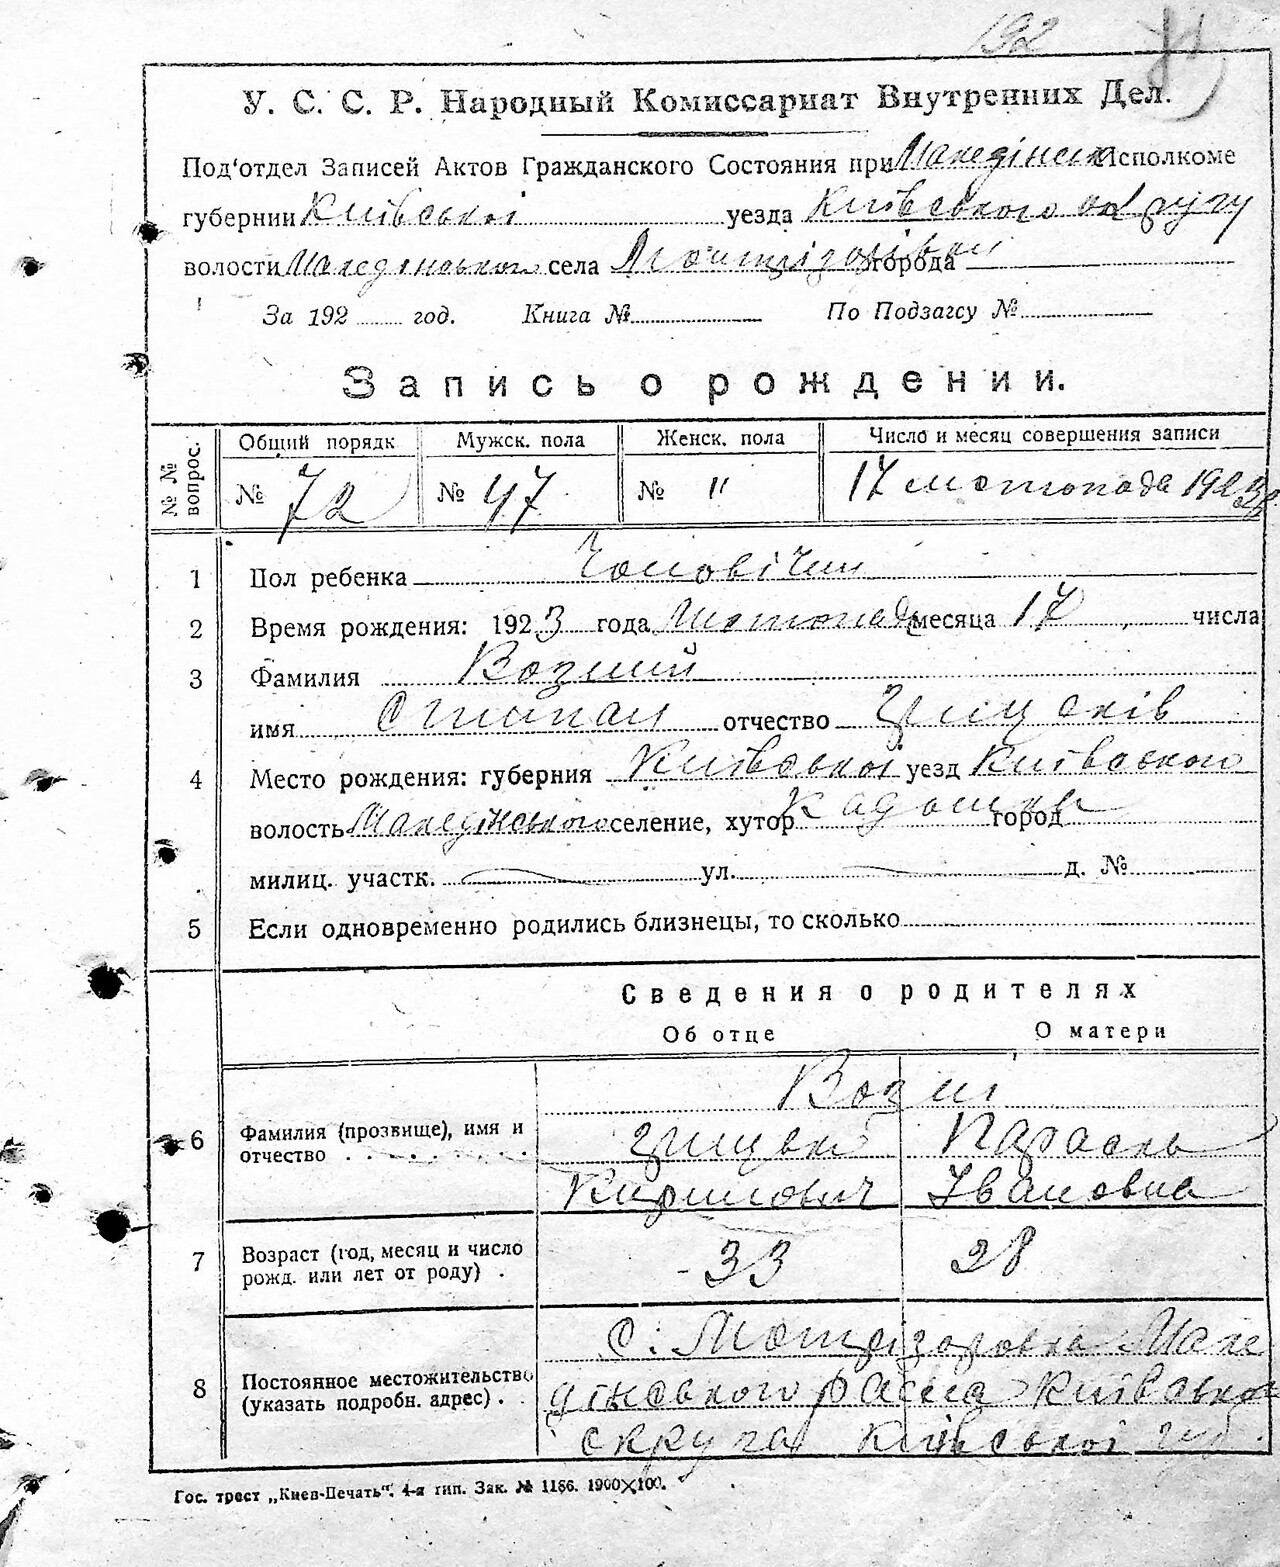 192
У. С. С. Р. Народный Комиссариат Внутренних Дел.
Под'отдел Записей Актов Гражданского Состояния при Македінськ Исполкоме
губернии Київської уезда Київського округу
волости Македінського села города
За 192 год. Книга № По Подзагсу №
Запись о рождении.
№ № вопрос. Общий порядк Мужск. пола Женск. пола Число и месяц совершения записи
№ 72 № 47 № " 17 листопада 1923 р.
1 Пол ребенка Чоловічий
2 Время рождения: 1923 года Листопада месяца 17 числа
3 Фамилия Возний
имя Степан отчество Грицьків
4 Место рождения: губерния Київської уезд Київського
волость Македінського селение, хутор город
милиц. участк. ул. д. №
5 Если одновременно родились близнецы, то сколько
Сведения о родителях
Об отце О матери
Возні
6 Фамилия (прозвище), имя и отчество Грицько Параска
Кирилович Івановна
7 Возраст (год, месяц и число рожд. или лет от роду) . 33 28
8 Постоянное местожительство (указать подробн. адрес) . С. Мотрізоровка Маке
дінського району Київської
округа Київської губ.
Гос. трест „Киев-Печать". 4-я тип. Зак. № 1186. 1900×100.